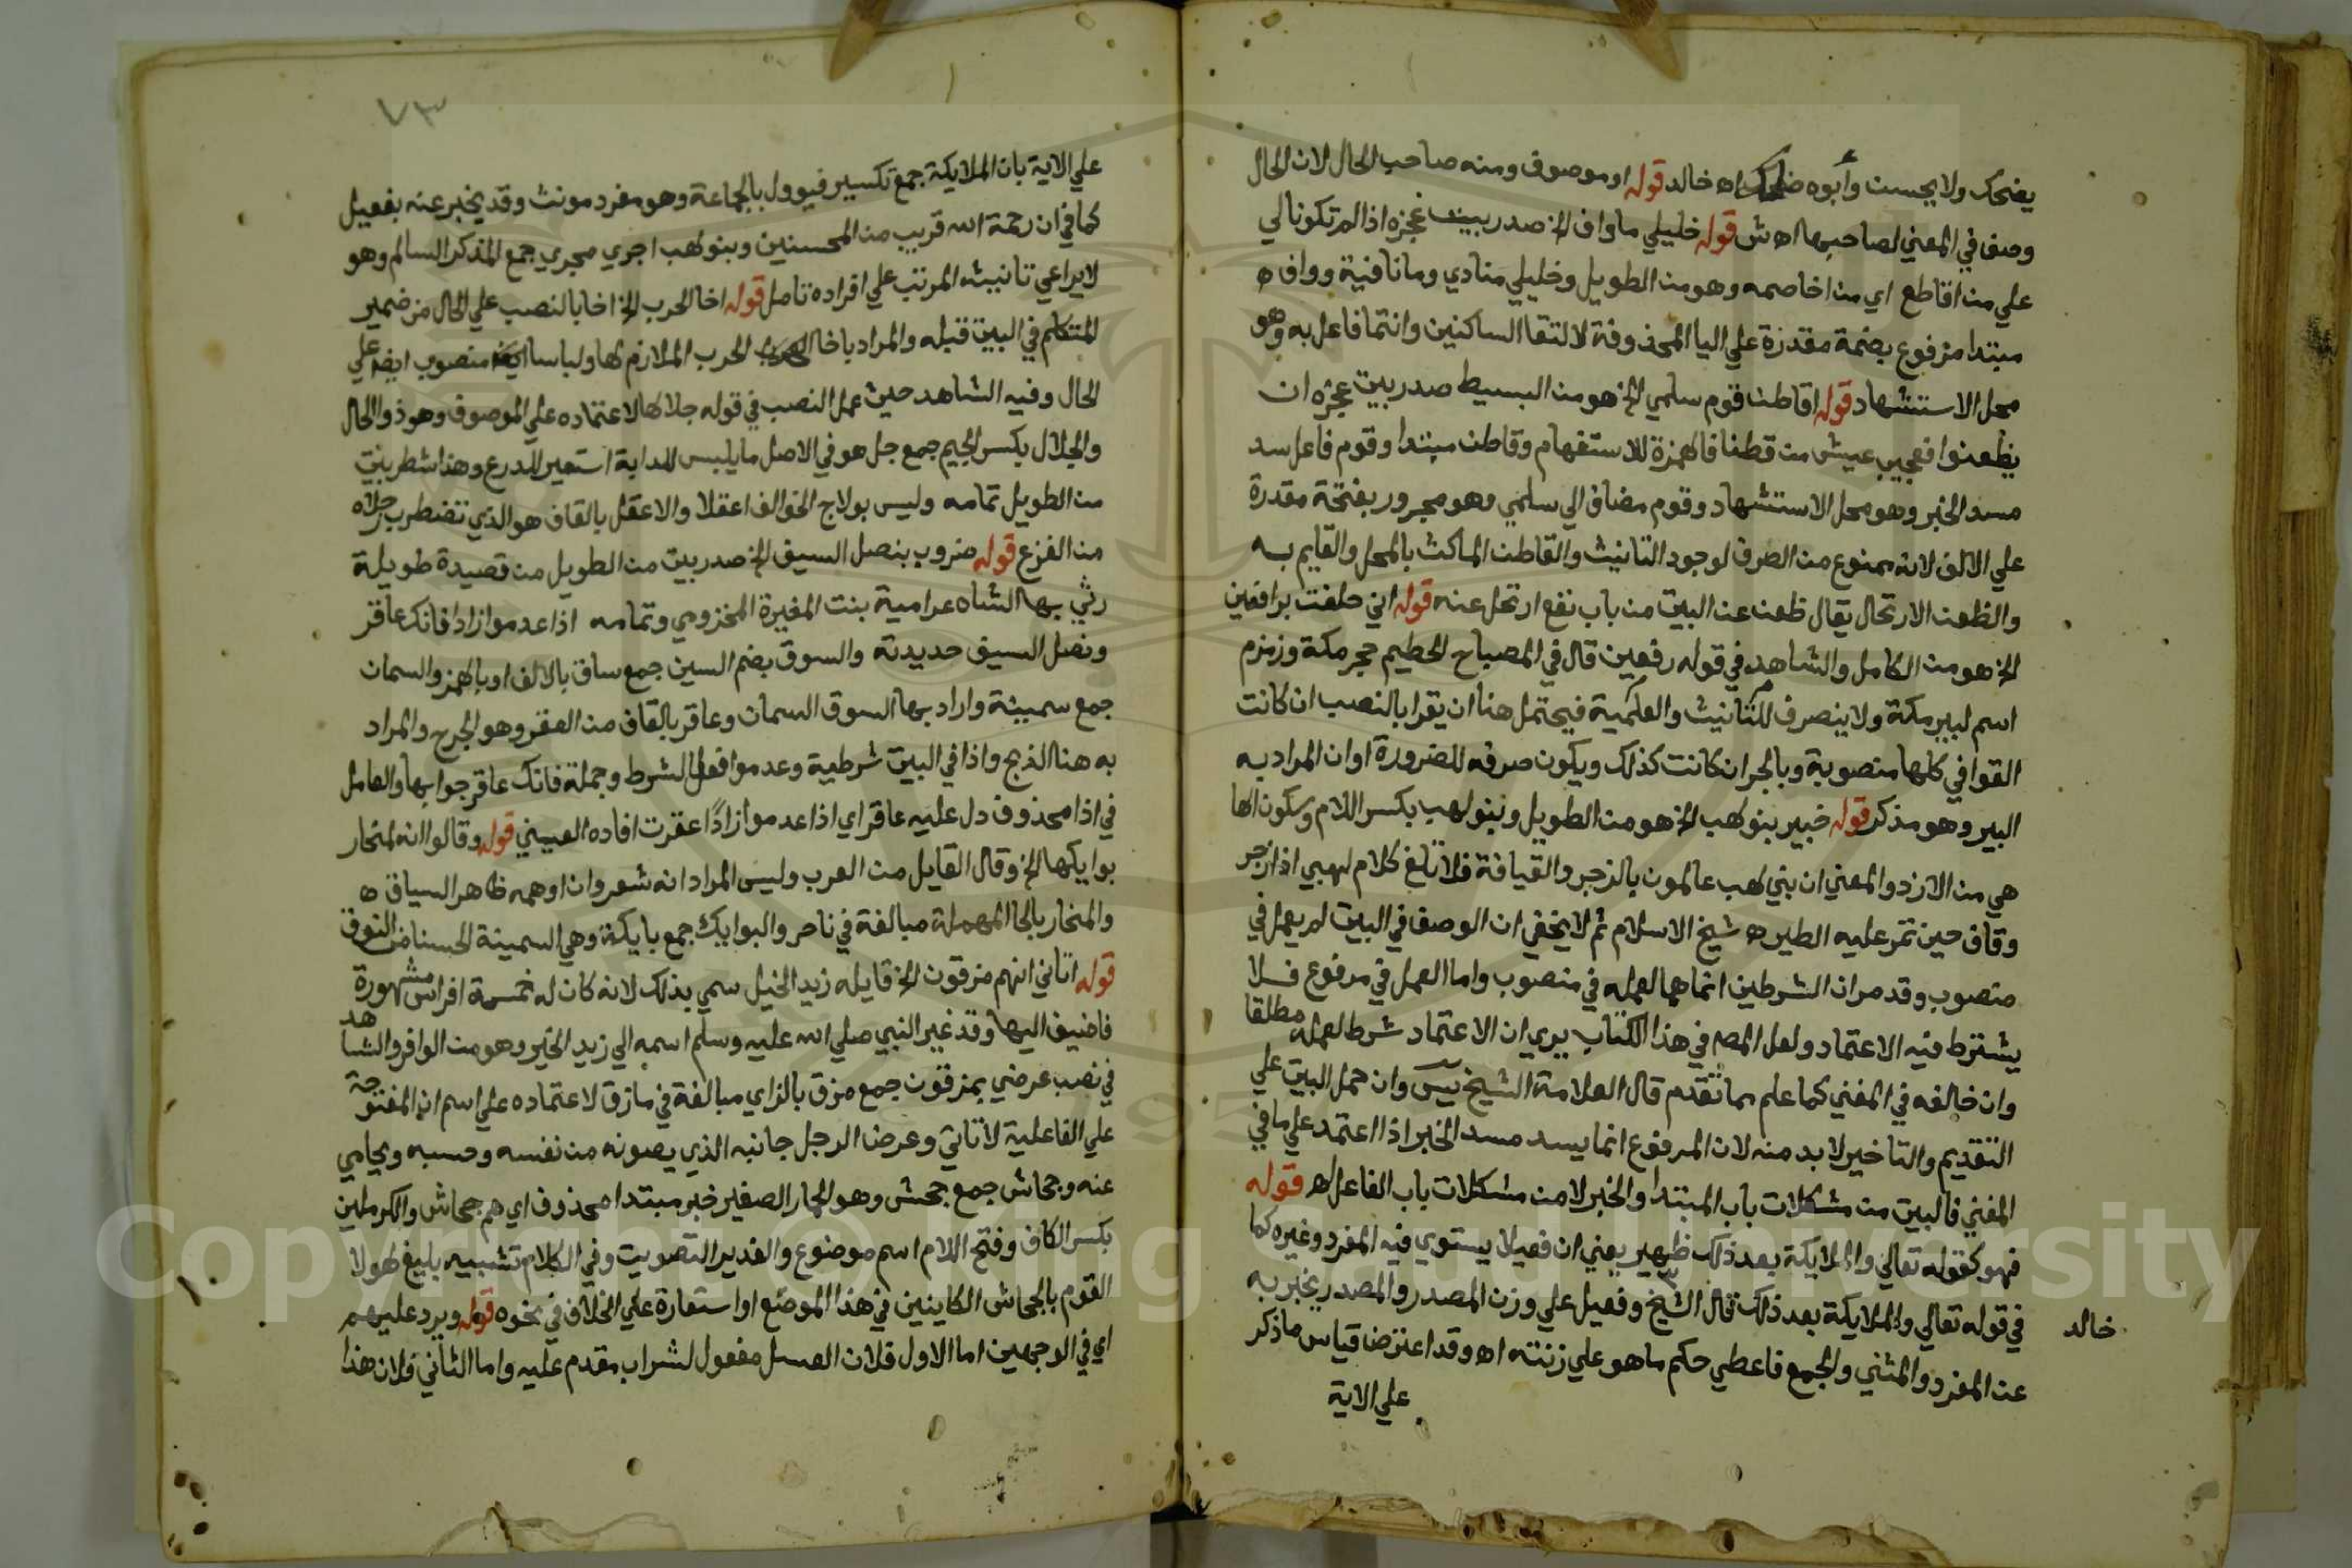 يضحك ولا يحسن وأبوه ضاحك اه خالد قوله او موصوف ومنه صاحب الحال لان الحال
وصف في المعني لصاحبها اه ش قوله خليلي ما واف الخ صدر بيت عجزه اذا لم تكونا لي
علي من اقاطع اي من اخاصمه وهو من الطويل وخليلي منادي وما نافية وواف ه
مبتدا مرفوع بضمة مقدرة علي اليا المحذوفة لالتقا الساكنين وانتما فاعل به وهو
محل الاستشهاد قوله اقاطن قوم سلمي الخ هو من البسيط صدر بيت عجزه ان
يظعنوا فعجيب عيش من قطنا فالهمزة للاستفهام وقاطن مبتدا وقوم فاعل سد
مسد الخبر وهو محل الاستشهاد وقوم مضاف الي سلمي وهو مجرور بفتحة مقدرة
علي الالف لانه ممنوع من الصرف لوجود التانيث والقاطن الماكث بالمحل والقايم به
والظعن الارتحال يقال ظعن عن البيت من باب نفع ارتحل عنه قوله اني حلفت برافعين
الخ هو من الكامل والشاهد في قوله رفعين قال في المصباح الحطيم حجر مكة وزمزم
اسم لبير مكة ولا ينصرف للتانيث والعلمية فيحتمل هنا ان يقرا بالنصب ان كانت
القوافي كلها منصوبة وبالجر ان كانت كذلك ويكون صرفه للضرورة او ان المراد به
البير وهو مذكر قوله خبير بنو لهب الخ هو من الطويل وبنو لهب بكسر اللام وسكون الها
هي من الازد والمعني ان بني لهب عالمون بالزجر والقيافة فلا تلغ كلام لهبي اذا زجر
وقاف حين تمر عليه الطير اه شيخ الاسلام ثم لا يخفي ان الوصف في البيت لم يعمل في
منصوب وقد مر ان الشرطين انما هما لعمله في منصوب واما العمل في مرفوع فلا
يشترط فيه الاعتماد ولعل المص في هذا الكتاب يري ان الاعتماد شرط لعمله مطلقا
وان خالفه في المغني كما علم مما تقدم قال العلامة الشيخ يس وان حمل البيت علي
التقديم والتاخير لا بد منه لان المرفوع انما يسد مسد الخبر اذا اعتمد علي ما في
المغني فالبيت من مشكلات باب المبتدا والخبر لا من مشكلات باب الفاعل اه قوله
فهو كقوله تعالي والملايكة بعد ذلك ظهير يعني ان فعيلا يستوي فيه المفرد وغيره كما
في قوله تعالي والملايكة بعد ذلك قال الشيخ وفعيل علي وزن المصدر والمصدر يخبر به
خالد
عن المفرد والمثني والجمع فاعطي حكم ما هو علي زنته اه وقد اعترض قياس ما ذكر
علي الاية
٧٣
علي الاية بان الملايكة جمع تكسير فيوول بالجماعة وهو مفرد مونث وقد يخبر عنه بفعيل
كما في ان رحمة الله قريب من المحسنين وبنو لهب اجري مجري جمع المذكر السالم وهو
لا يراعي تانيثه المرتب علي افراده تامل قوله اخا الحرب الخ اخا بالنصب علي الحال من ضمير
المتكلم في البيت قبله والمراد باخا الحرب الملازم لها ولباسا منصوب ايضا علي
الحال وفيه الشاهد حيث عمل النصب في قوله جلالها لاعتماده علي الموصوف وهو ذو الحال
والجلال بكسر الجيم جمع جل هو في الاصل ما يلبس للدابة استعير للدرع وهذا شطر بيت
من الطويل تمامه وليس بولاج الخوالف اعقلا والاعقل بالقاف هو الذي تضطرب رجلاه
من الفزع قوله ضروب بنصل السيف الخ صدر بيت من الطويل من قصيدة طويلة
رثي بها الشاعر امية بنت المغيرة المخزومي وتمامه اذا عدموا زادا فانك عاقر
ونصل السيف حديدته والسوق بضم السين جمع ساق بالالف او بالهمز والسمان
جمع سمينة واراد بها السوق السمان وعاقر بالقاف من العقر وهو الجرح والمراد
به هنا الذبح واذا في البيت شرطية وعدموا فعل الشرط وجملة فانك عاقر جوابها والعامل
في اذا محذوف دل عليه عاقر اي اذا عدموا زادًا عقرت افاده العيني قوله وقالوا انه لمنحار
بوايكها الخ وقال القايل من العرب وليس المراد انه شعر وان اوهمه ظاهر السياق ه
والمنحار بالحا المهملة مبالغة في ناحر والبوايك جمع بايكة وهي السمينة الحسنا من النوق
قوله اتاني انهم مزقون الخ قايله زيد الخيل سمي بذلك لانه كان له خمسة افراس مشهورة
فاضيف اليها وقد غير النبي صلي الله عليه وسلم اسمه الي زيد الخير وهو من الوافر والشاهد
في نصب عرضي بمزقون جمع مزق بالزاي مبالغة في مازق لاعتماده علي اسم ان المفتوحة
علي الفاعلية لاتاني وعرض الرجل جانبه الذي يصونه من نفسه وحسبه ويحامي
عنه وجحاش جمع جحش وهو الحمار الصغير خبر مبتدا محذوف اي هم جحاش والكرملين
بكسر الكاف وفتح اللام اسم موضوع والفدير التصويت وفي الكلام تشبيه بليغ لهولا
القوم بالجحاش الكاينين في هذا الموضع او استعارة علي الخلاف في نحوه قوله ويرد عليهم
اي في الوجهين اما الاول فلان العسل مفعول لشراب مقدم عليه واما الثاني فلان هذا
Copyright © King Saud University